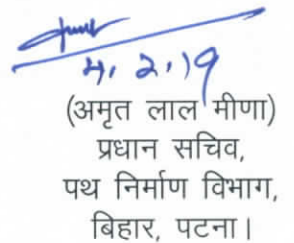 4.2.19
(अमृत लाल मीणा)
प्रधान सचिव,
पथ निर्माण विभाग,
बिहार, पटना।